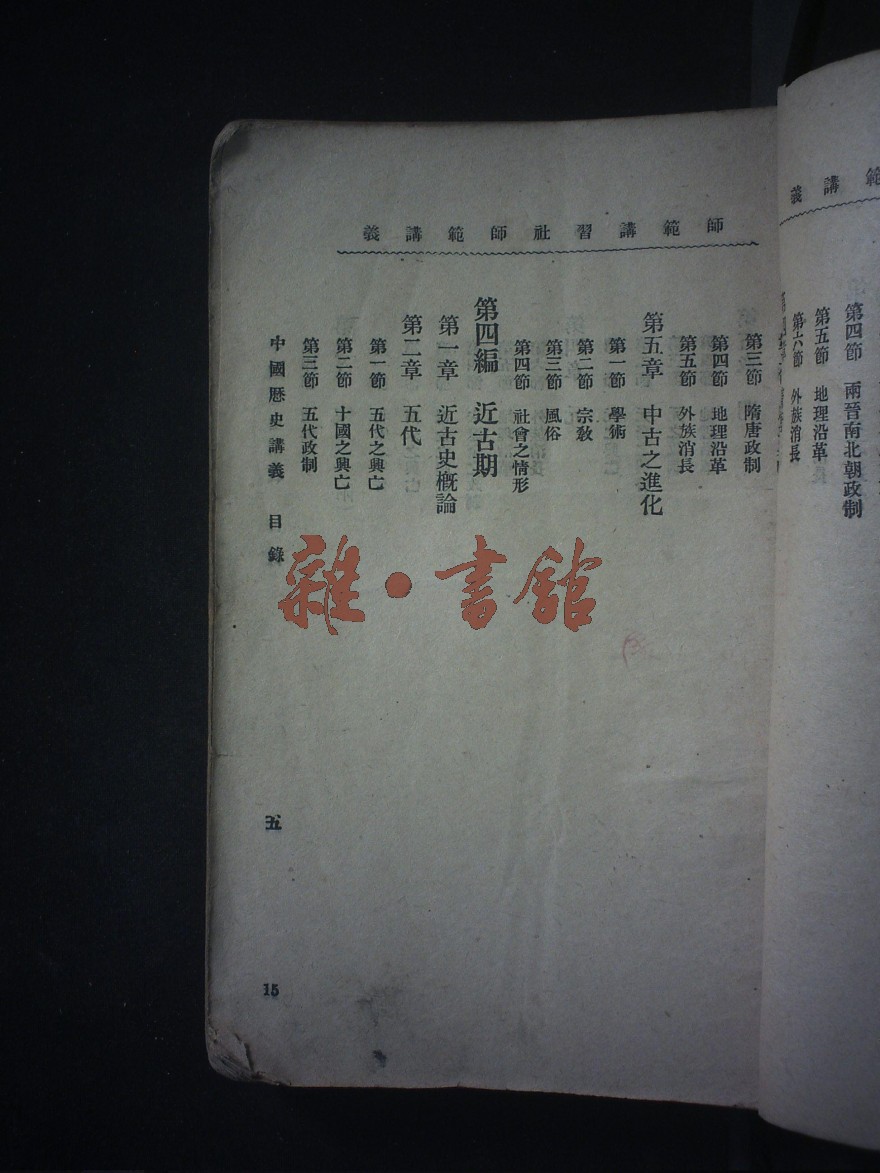 師範講習社師範講義
第三節　隋唐政制
第四節　地理沿革
第五節　外族消長
第五章　中古之進化
第一節　學術
第二節　宗教
第三節　風俗
第四節　社會之情形
第四編　近古期
第一章　近古史概論
第二章　五代
第一節　五代之興亡
第二節　十國之興亡
第三節　五代政制
中國歷史講義　目錄
五
15
雜・書館
範講義
第四節　兩晉南北朝政制
第五節　地理沿革
第六節　外族消長